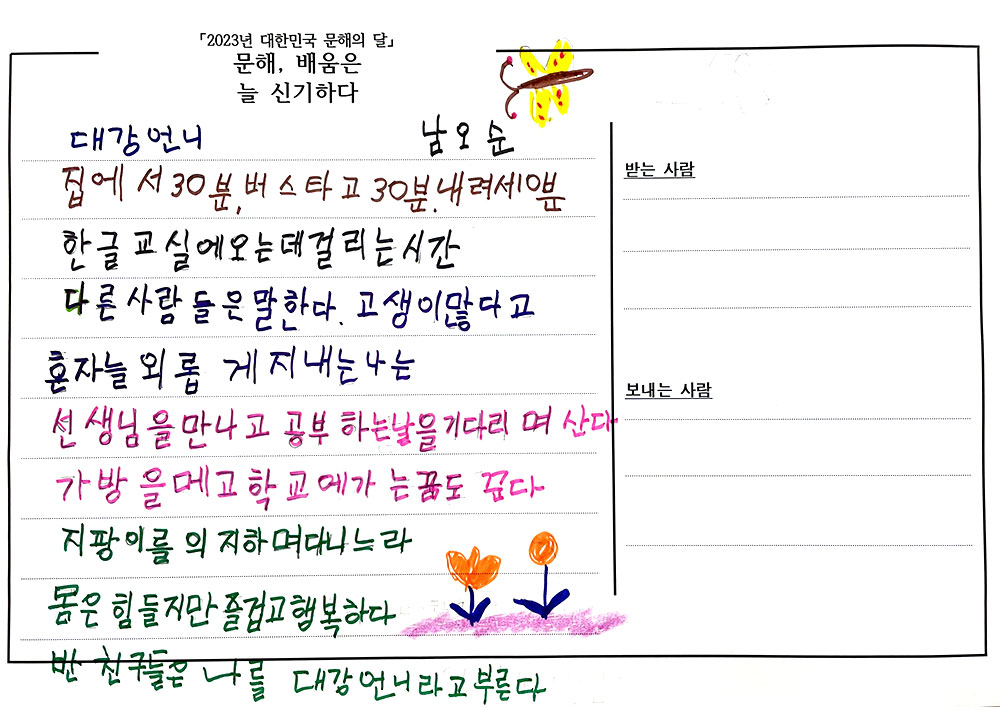 「2023년 대한민국 문해의 달」
문해, 배움은
늘 신기하다
대강언니 남오순
집에서 30분, 버스타고 30분. 내려서10분
한글교실에오는데걸리는시간
다른사람들은말한다. 고생이많다고
혼자늘외롭게지내는나는
선생님을만나고 공부하는날을기다리며 산다
가방을메고학교에가는꿈도 꾼다
지팡이를 의지하며다니느라
몸은힘들지만즐겁고행복하다
반 친구들은 나를 대강언니라고부른다
받는 사람
보내는 사람